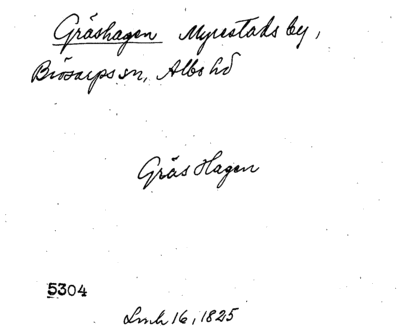 Gräshagen Myrestads by,
Brösarps sn, Albo hd
Gräs Hagen
5304
Lmh 16, 1825